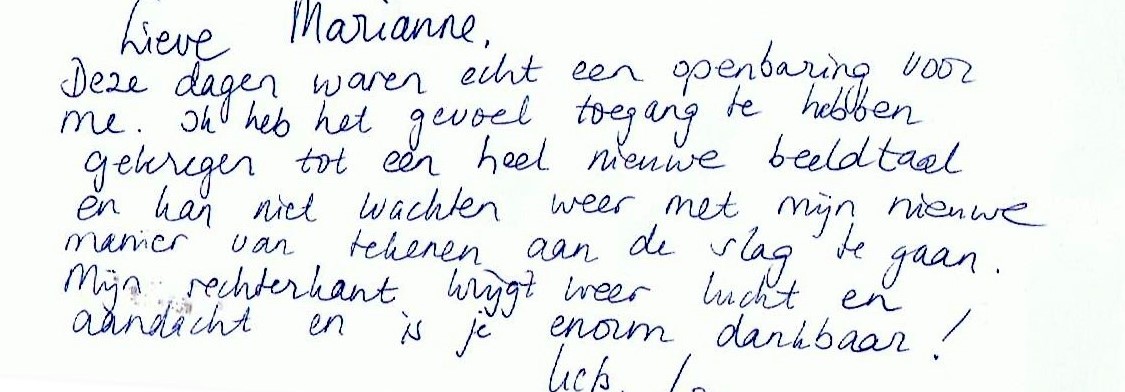 Lieve Marianne,
Deze dagen waren echt een openbaring voor
me. Ik heb het gevoel toegang te hebben
gekregen tot een heel nieuwe beeldtaal
en kan niet wachten weer met mijn nieuwe
manier van tekenen aan de slag te gaan.
Mijn rechterkant krijgt weer lucht en
aandacht en is je enorm dankbaar!